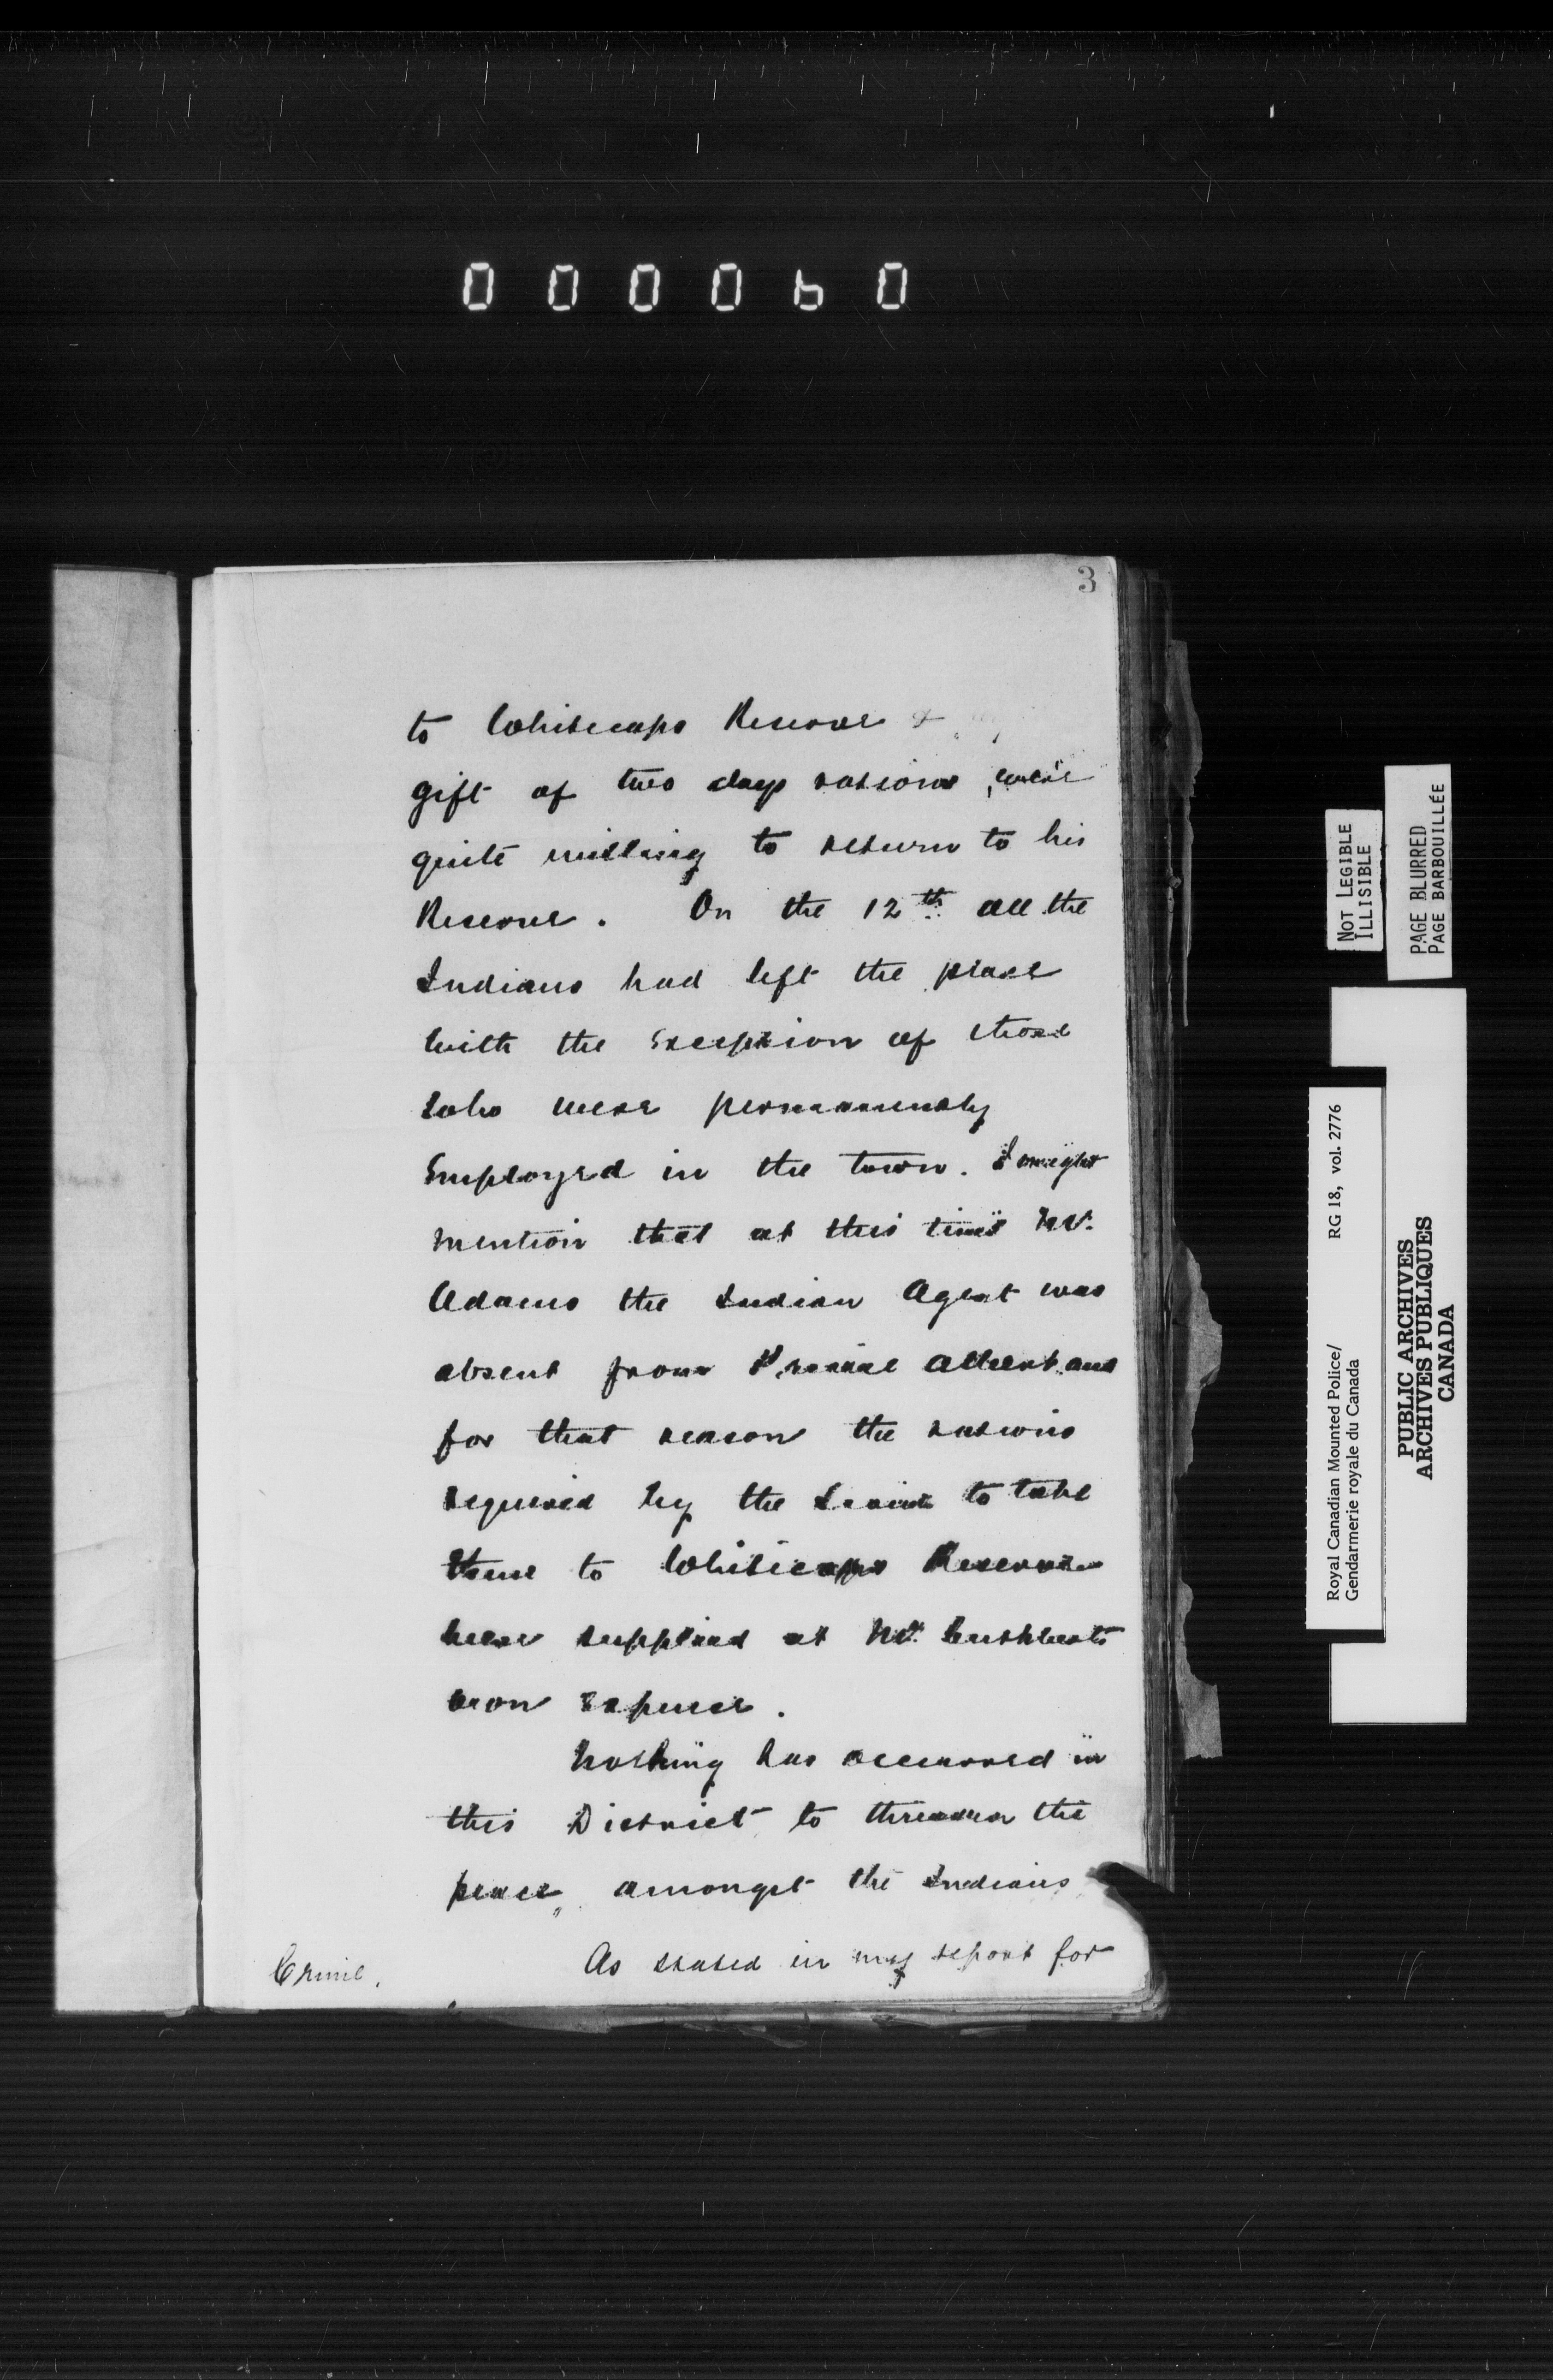 000060
3
to Whitecaps Reserve &
gift of two days rations, were
quite willing to return to his
Reserve. On the 12th all the
Indians had left the place
with the Exception of those
who were permanently
Employed in the town. I might
mention that at this time Mr.
Adams the Indian Agent was
absent from Prince Albert and
for that reason the rations
required by the Sioux to take
them to Whitecaps Reserve
were supplied at Mr. Cuthberts
own Expense.
Nothing has occurred in
this District to threaten the
peace, amongst the Indians
Crime. As stated in my report for
NOT LEGIBLE
ILLISIBLE
PAGE BLURRED
PAGE BARBOUILLÉE
Royal Canadian Mounted Police/ RG 18, vol. 2776
Gendarmerie royale du Canada
PUBLIC ARCHIVES
ARCHIVES PUBLIQUES
CANADA